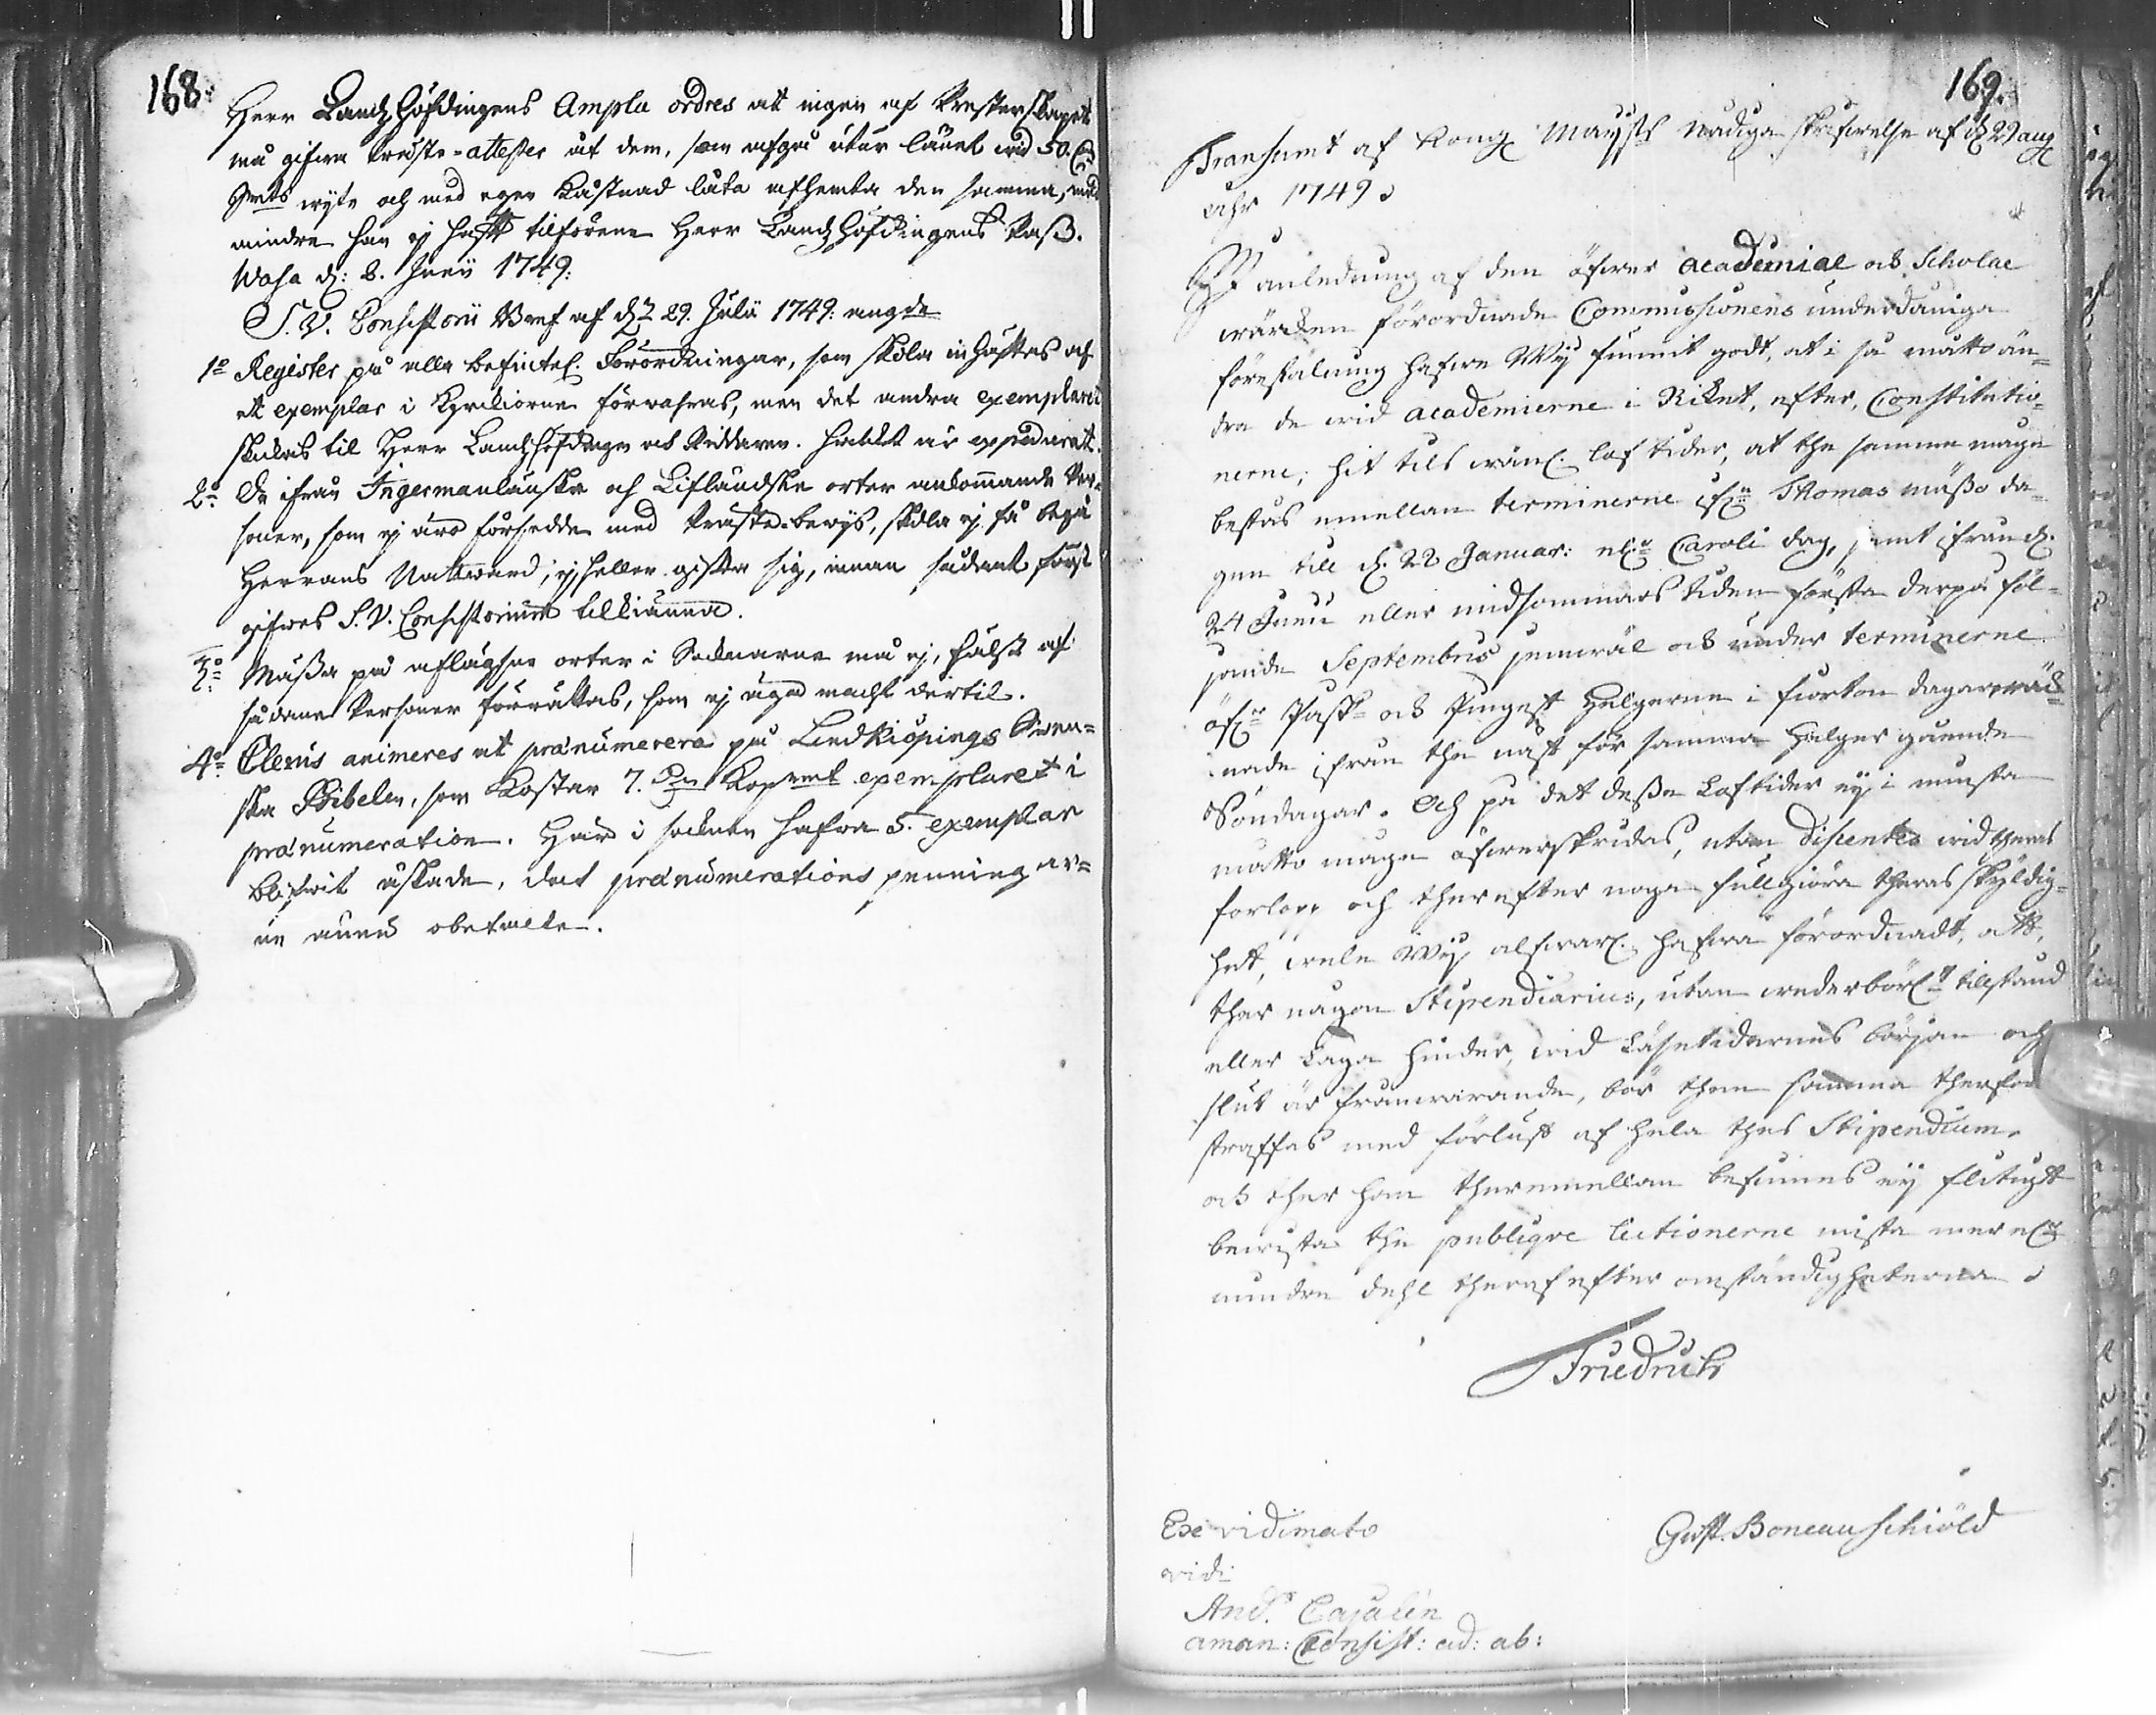 168.
Herr Landzhöfdingens Ampla ordres att ingen af Presterskapet
må gifwa Präste-attester åt dem, som afgå utur länet wid 50. D:r
Smts wyte och med egen kåstnad låta afhemta den samma, med
mindre han ej haft tilförene Herr Landzhöfdingens Pass.
Wasa d: 8. Junii 1749:
S. V. Consistorii Bref af d: 29. Julii 1749: angde
1:o Register på alla befintel. Förordningar, som skola inhäftas af
ett exemplar i Kyrkiorne förwahras, men det andra exemplaret
skickas til Herr Landzhöfdingen och Riddaren. hwilket är expedierat.
2:o De ifrån Ingermanlänska och Liflandske orter ankommande Per-
soner, som ej äro försedde med Präste-bewys, skola ej få begå
Herrans Nattward, ej heller gifta sig, innan sådant först
gifwes S. V. Consistorium tillkänna.
3:o Mässa på aflägsne orter i Socknarne må ej, hälst af
sådane Personer förrättas, som ej äga macht dertil.
4:o Clerus animeres at prænumerera på Lindkiöpings Swen-
ska Bibeln, som kostar 7. D:r Kopmt exemplaret i
prænumeration. Här i socknen hafwa 5. exemplar
blifwit åstade, dat prænumerations penningar-
ne ännu obetalte.
169.
Transumt af Kongl Mayst:s nådiga skrifwelse af d: 22 aug
åhr 1749.
På anledning af den öfwer academiae och Scholae
wärcken förordnade Commissionens underdåniga
förestälning hafwe Wy funnit godt, at i så matto än-
dra de wid academierne i Riket, efter Constitutio-
nerne, hit tils wanl. lof tider, at the samma måge
bestås emellan terminerne ifrån Thomas mässo da-
gen till d. 22 Januar: eller Caroli dag, samt ifrån d.
24 Junii eller midsommars tiden första derpå föl-
jande Septembris jemwäl och under terminerne
öfwer Pask- och Pingest Helgerne i fiorton dagar räk-
nade ifrån the näst för samma Helger gående
Söndagar. Och på det desse Loftider ej i minsta
matto måge öfwerskridas, utan discentes wid theras
förlopp och therefter noga fullgiöra theras skyldig-
het, wele Wy alfwarl. hafwa förordnadt, att,
ther någon Stipendiarius, utan wederbörl:t tillstånd
eller Laga hinder, wid Läsetidernes början och
slut är frånwarande, bör then samma therföre
straffas med förlust af hela thes Stipendium,
och ther han theremellan befinnes ej flitigt
bewista the publique lectionerne mista mer eller
mindre dehl theraf efter omständigheterna.
Friedrich
Gust. Boneauschiöld
Ex vidimato
vidi
And:s Cajalén
aman: Consist: ad: ab: